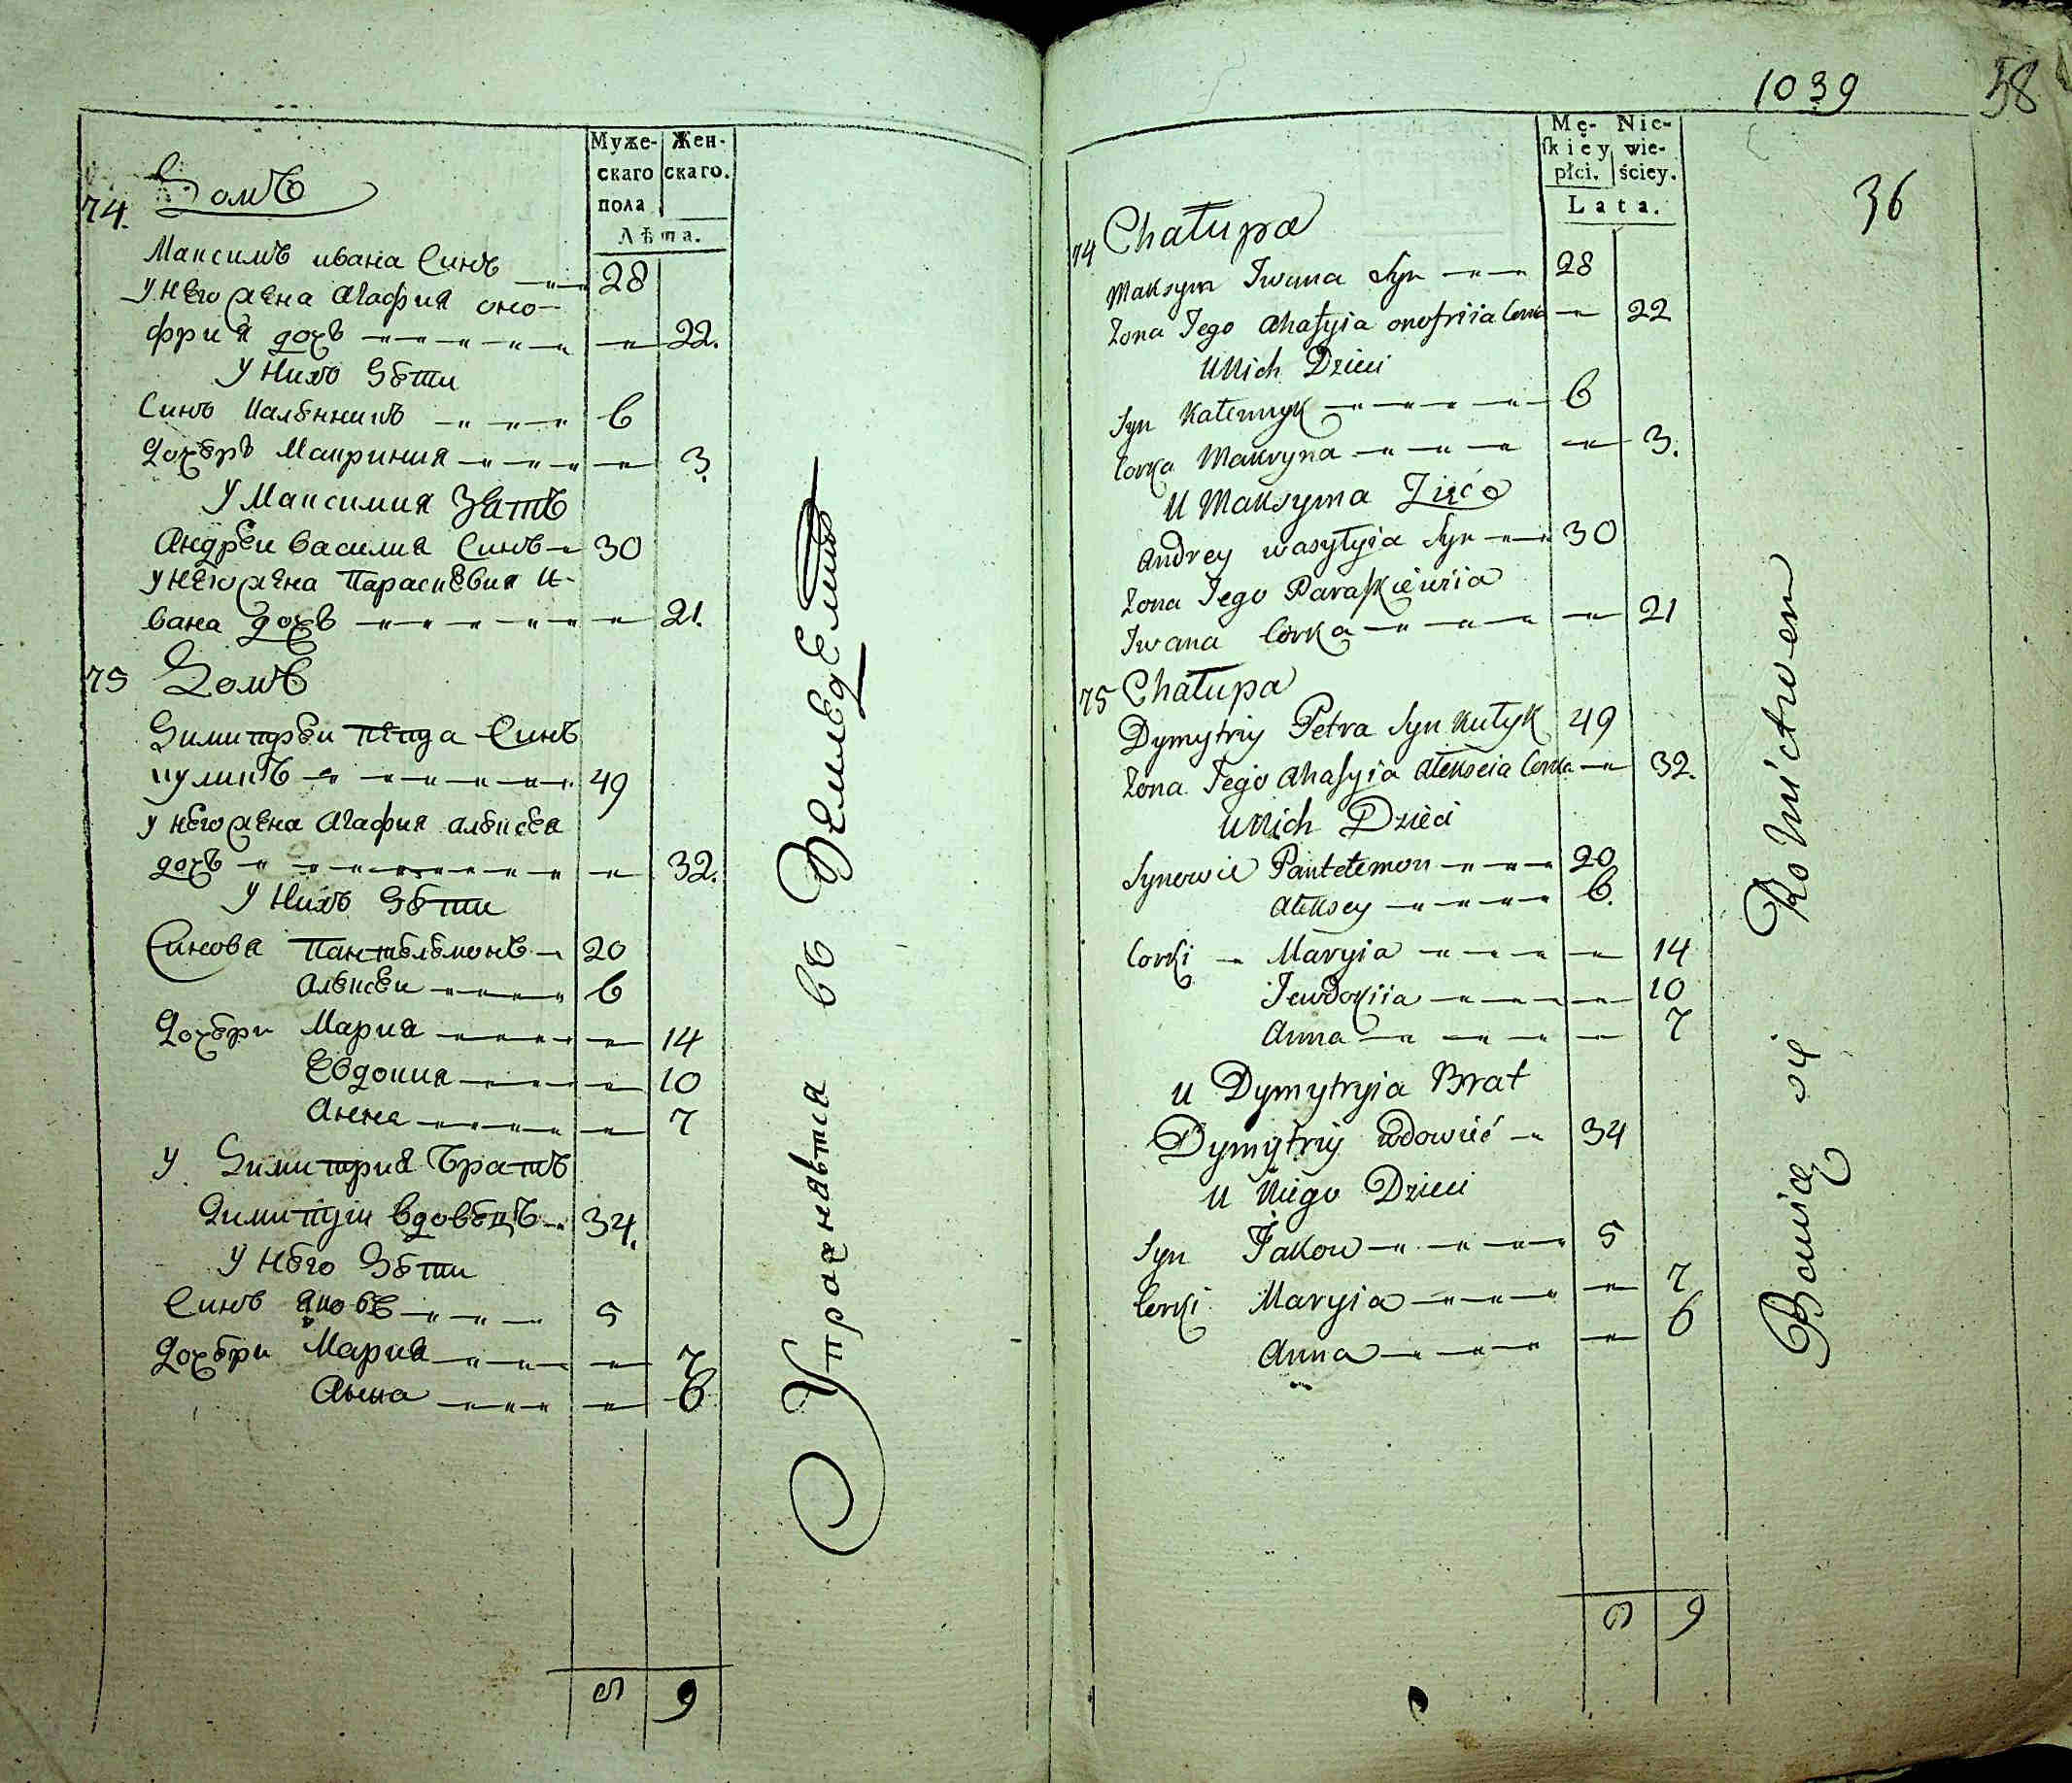 Муже- Жен-
скаго скаго.
пола
Лѣта.
74. Домъ
Максимъ ивана Синъ 28
У него жена Агафия оно-
фрия дочъ 22.
У нихъ Дѣти
Синъ Калѣникъ 6
Дочерь Макриния 3.
У Максимия Зять
Андреи василия Синъ 30
У него жена Параскевия И-
вана дочъ 21.
75 Домъ
Димитреи Петра Синъ
куликъ 49
У него жена Агафия алексея
дочъ 32.
У нихъ Дѣти
Синова Пантелемонъ 20
Алексеи 6
Дочери Мария 14
Евдокия 10
Анна 7
У Димитрия Братъ
Димитрій вдовецъ 34.
У него Дѣти
Синъ яковъ 5
Дочери Мария 7
Анна 6
Упражнявтся въ Земледелию
9
1039 58
36
Mę- Nie-
ſkiey wie-
płci. ściey.
Lata.
74 Chałupa
Maksym Iwana Syn 28
Zona Jego Ahafyia onofriia Corka 22
U Nich Dzieci
Syn Kałennyk 6
Corka Makryna 3.
U Maksyma Zięć
Andrey wasyłyia Syn 30
Zona Jego Paraſkiewiia
Iwana Corka 21
75 Chałupa
Dymytriy Petra Syn Kułyk 49
Zona Jego Ahafyia Ałekseia Corka 32.
U Nich Dzieci
Synowie Pantełemon 20
Ałeksey 6.
Corki Maryia 14
Jewdokiia 10
Anna 7
u Dymytryia Brat
Dymytriy wdowiec 34
U Niego Dzieci
Syn Jakow 5
Corki Maryia 7
Anna 6
Bawią się Rolnictwem
9